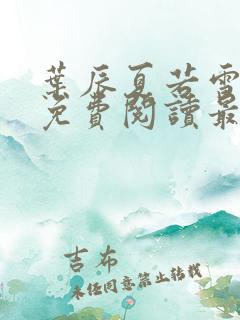 葉辰夏若雪
免費閱讀最
吉布
未经同意禁止转载